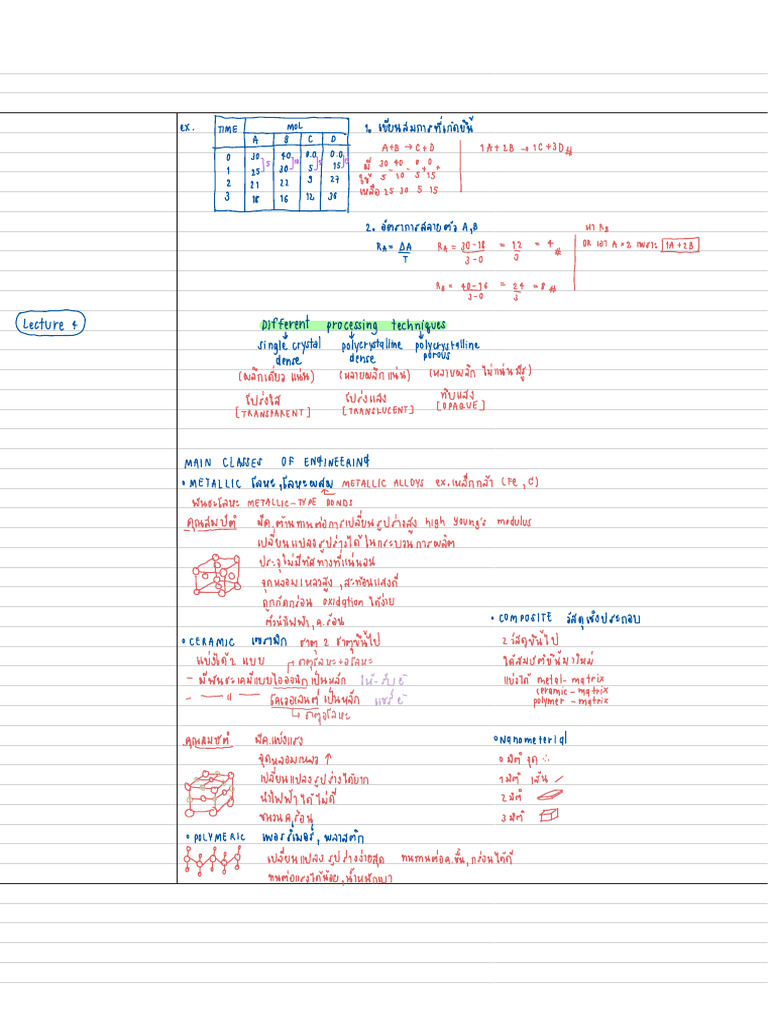 ex.
TIME MOL
A B C D
0 30 40 0.0 0.0
1 25 30 5 15
2 21 22 9 27
3 18 16 12 36
5 10 5 15
1. เขียนสมการที่เกิดขึ้น
A+B → C+D
มี 30 40 0 0
ใช้ 5 - 10 - 5 + 15 +
เหลือ 25 30 5 15
1A + 2B → 1C + 3D #
2. อัตราการสลายตัว A,B
RA = ΔA/T
RA = 30-18/3-0 = 12/3 = 4 #
RB = 40-16/3-0 = 24/3 = 8 #
หา RB
OR เอา A × 2 เพราะ 1A+2B
Lecture 4
Different processing techniques
single crystal dense
polycrystalline dense
polycrystalline porous
(ผลึกเดี่ยว แน่น) (หลายผลึก แน่น) (หลายผลึก ไม่แน่น มีรู)
โปร่งใส โปร่งแสง ทึบแสง
[TRANSPARENT] [TRANSLUCENT] [OPAQUE]
MAIN CLASSES OF ENGINEERING
• METALLIC โลหะ,โลหะผสม METALLIC ALLOYS ex.เหล็กกล้า (Fe, C)
พันธะโลหะ METALLIC-TYPE BONDS
คุณสมบัติ ยืด,ต้านทานต่อการเปลี่ยนรูปร่างสูง high young's modulus
เปลี่ยนแปลงรูปร่างได้ในกระบวนการผลิต
ประจุไม่มีทิศทางที่แน่นอน
จุดหลอมเหลวสูง,สะท้อนแสงดี
ถูกกัดกร่อน oxidation ได้ง่าย
ตัวนำไฟฟ้า,ค.ร้อน
• CERAMIC เซรามิก ธาตุ 2 ธาตุขึ้นไป
แบ่งได้ 2 แบบ ธาตุโลหะ+อโลหะ
- มีพันธะเคมีแบบไอออนิกเป็นหลัก ให้-รับ e
- —— " —— โคเวอเลนต์ เป็นหลัก แชร์ e
ธาตุอโลหะ
คุณสมบัติ แข็งแรง
จุดหลอมเหลว ↑
เปลี่ยนแปลงรูปร่างได้ยาก
นำไฟฟ้าได้ไม่ดี
ฉนวน ค.ร้อน
• POLYMERIC พอลิเมอร์, พลาสติก
เปลี่ยนแปลง รูปร่างง่ายสุด ทนทานต่อค.ชื้น,กร่อนได้ดี
ทนต่อแรงได้น้อย,น้ำหนักเบา
• COMPOSITE วัสดุเชิงประกอบ
2 วัสดุขึ้นไป
ได้สมบัติขึ้นมาใหม่
แบ่งได้ metal-matrix
ceramic-matrix
polymer-matrix
• Nanometerial
0 มิติ จุด
1 มิติ เส้น
2 มิติ
3 มิติ